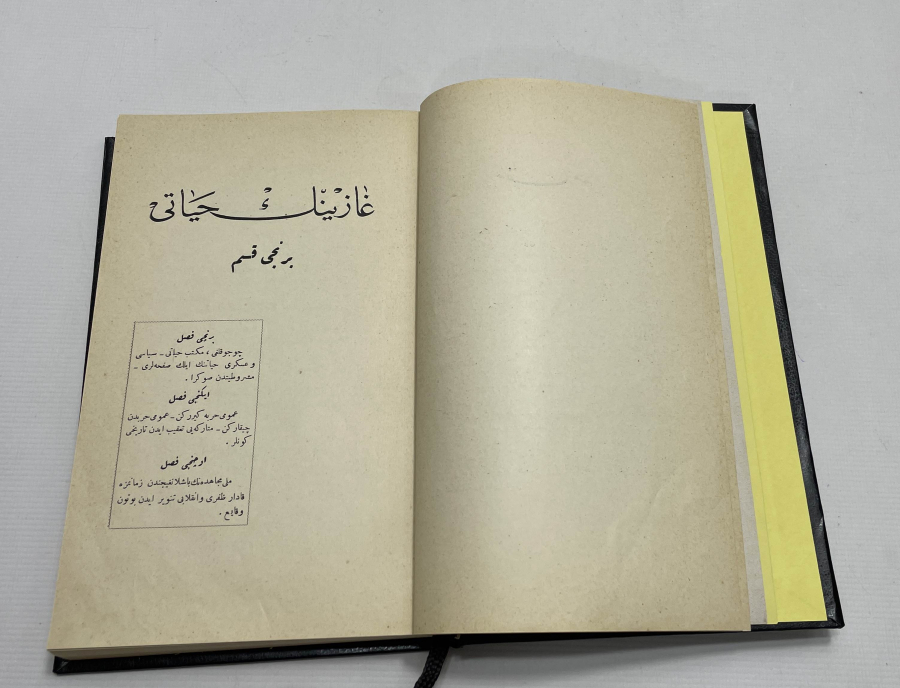 غازینڭ حیاتی
برنجی قسم
برنجی فصل
چوجوقلغی ، مکتب حیاتی ـ سیاسی
و عسکری حیاتنڭ ایلك صفحه‌لری ـ
مشروطیتدن صوکرا .
ایکنجی فصل
عمومی حربه کیررکن ـ عمومی حربدن
چیقارکن ـ متارکه‌یی تعقیب ایدن تاریخی
کونلر .
اوچنجی فصل
ملی مجاهده‌نك باشلانغیجندن زمانمزه
قادار ظفری و انقلابی تنویر ایدن بوتون
وقایع .